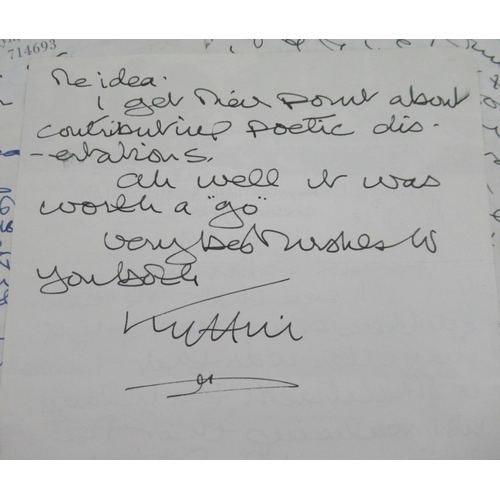 714693
The idea.
I get their point about
contributing poetic dis-
-ertations.
Ah well it was
worth a "go"
very best wishes to
you both